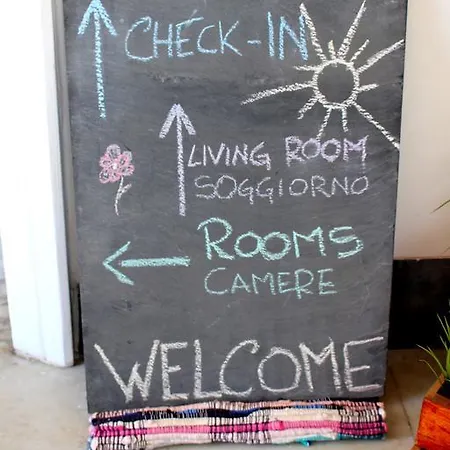 CHECK-IN
LIVING ROOM
SOGGIORNO
ROOMS
CAMERE
WELCOME